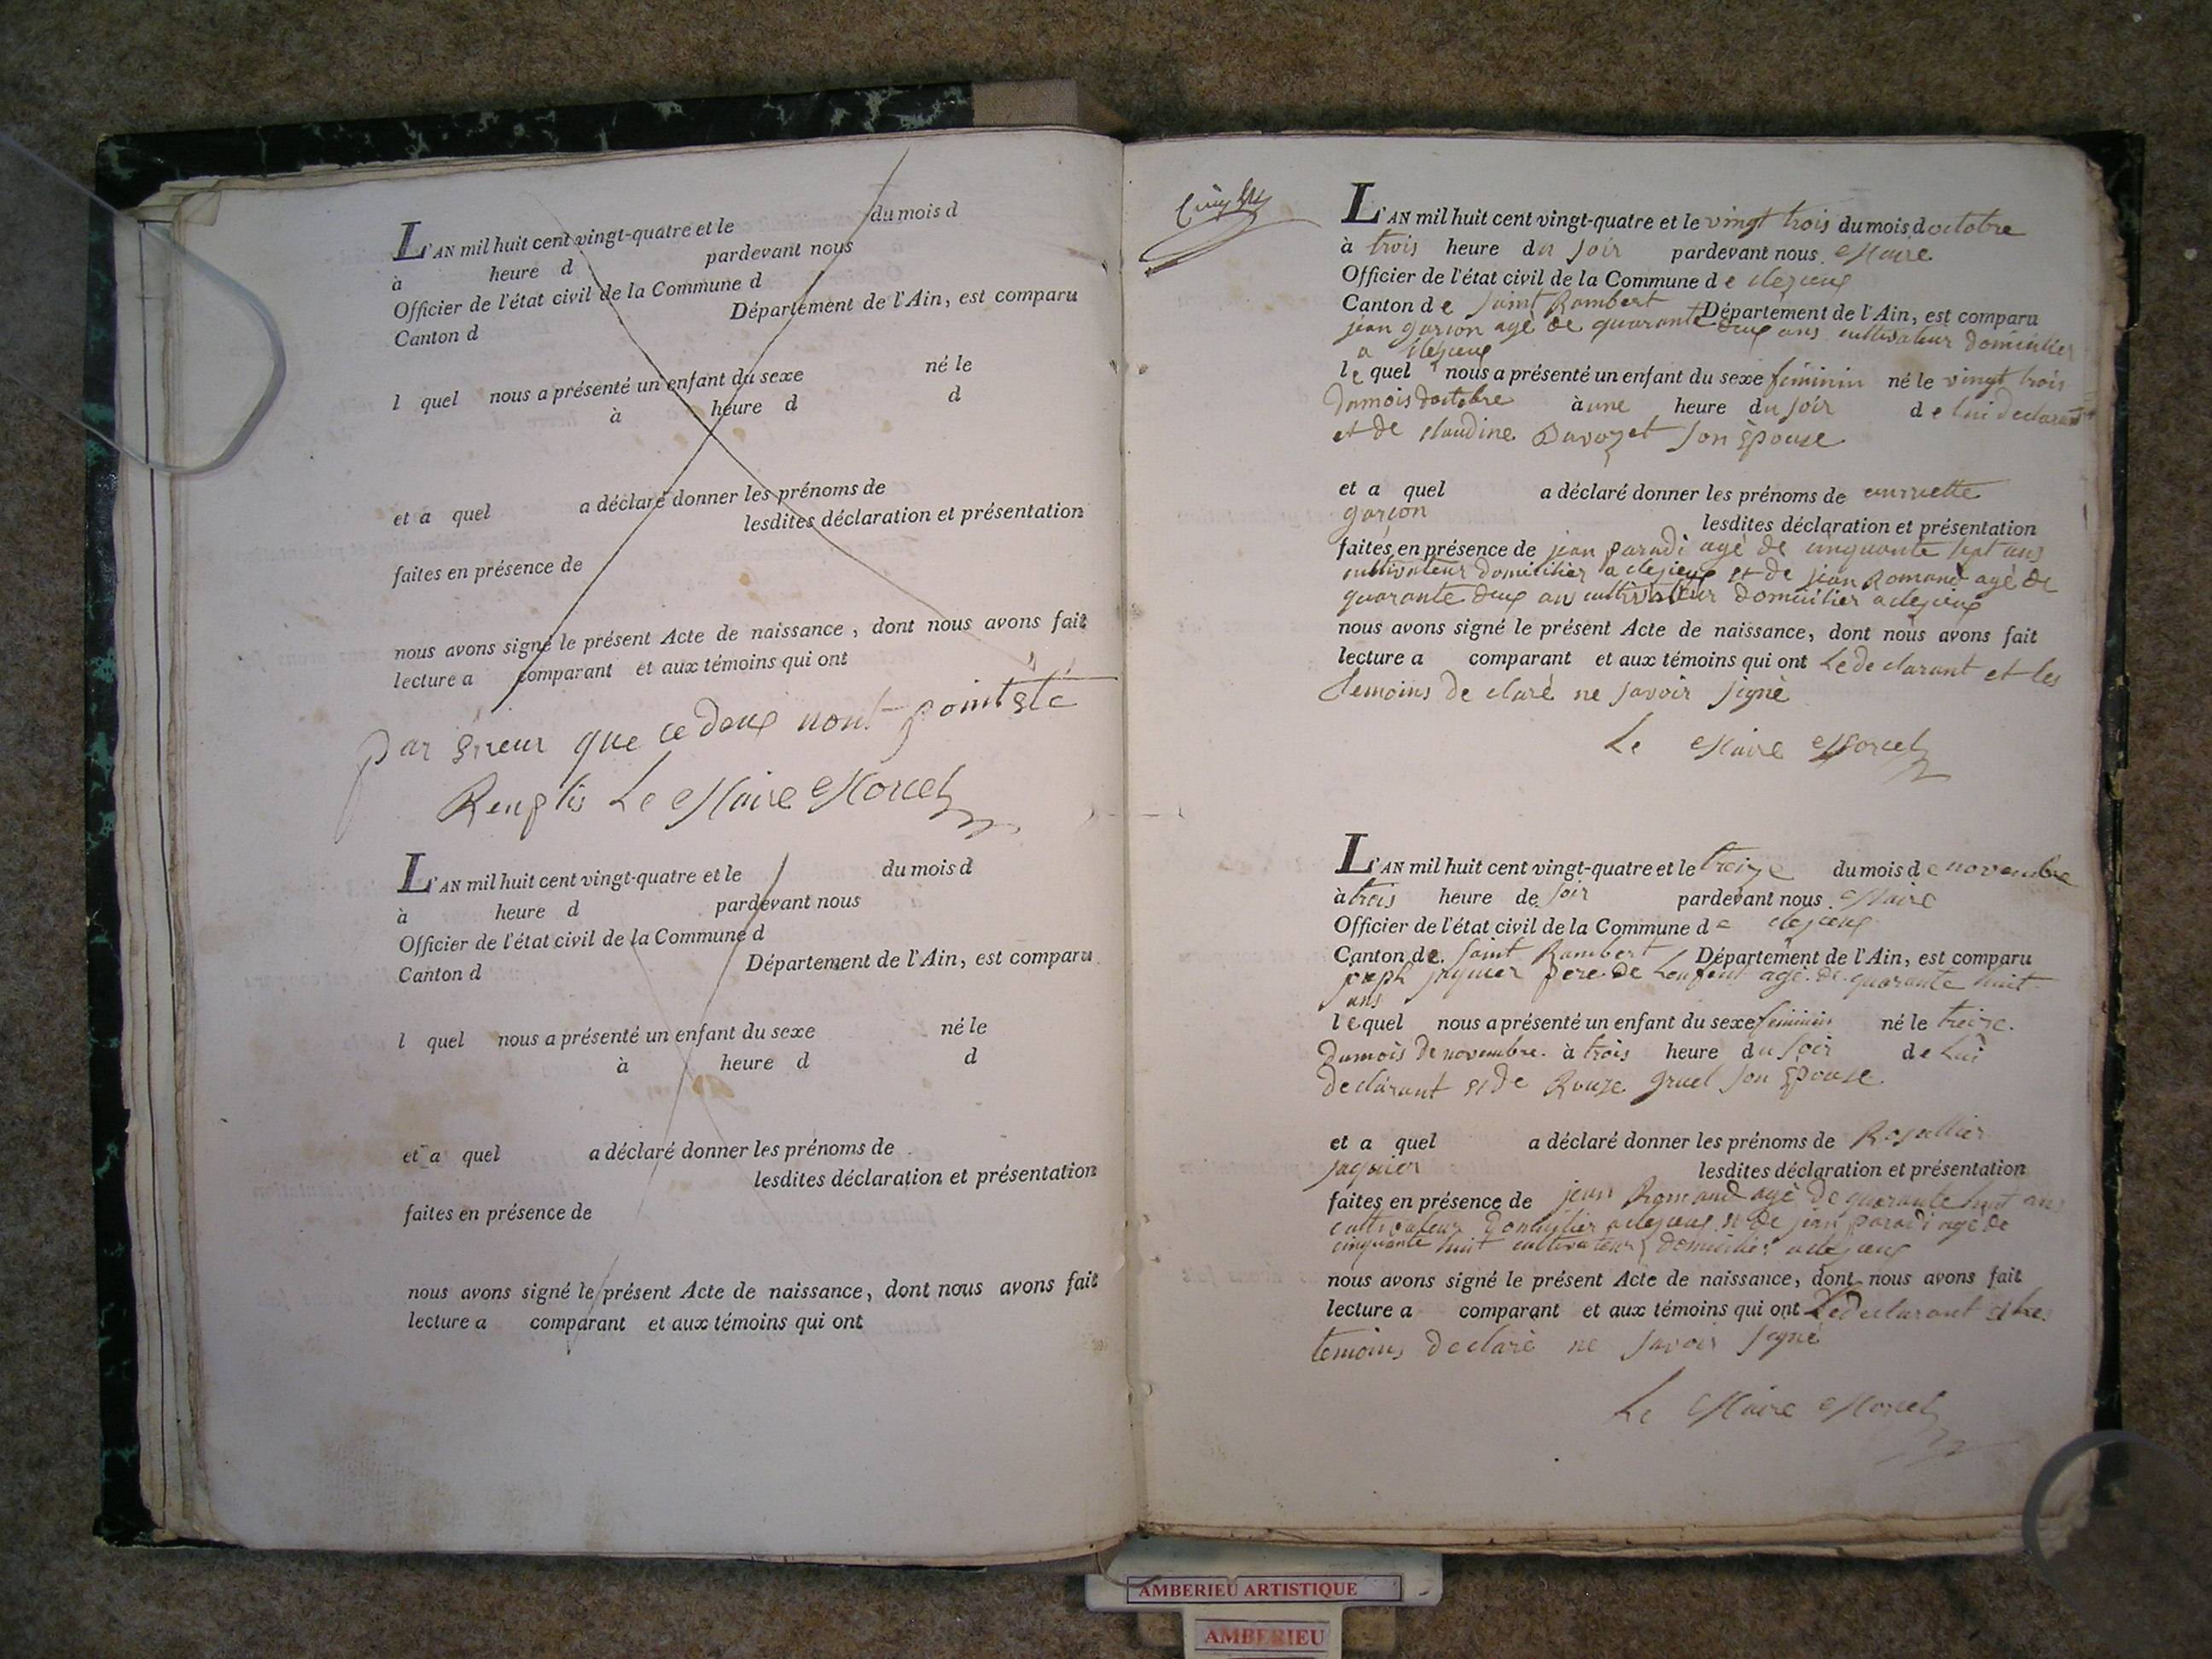 L'AN mil huit cent vingt-quatre et le du mois d
à heure d pardevant nous
Officier de l'état civil de la Commune d
Canton d Département de l'Ain, est comparu
l quel nous a présenté un enfant du sexe né le
à heure d d
et a quel a déclaré donner les prénoms de
lesdites déclaration et présentation
faites en présence de
nous avons signé le présent Acte de naissance, dont nous avons fait
lecture a comparant et aux témoins qui ont
par Erreur que ce deux nont point Eté
Renplis Le Maire Morcel
L'AN mil huit cent vingt-quatre et le du mois d
à heure d pardevant nous
Officier de l'état civil de la Commune d
Canton d Département de l'Ain, est comparu
l quel nous a présenté un enfant du sexe né le
à heure d d
et a quel a déclaré donner les prénoms de
lesdites déclaration et présentation
faites en présence de
nous avons signé le présent Acte de naissance, dont nous avons fait
lecture a comparant et aux témoins qui ont
L'AN mil huit cent vingt-quatre et le vingt trois du mois doctobre
à trois heure du soir pardevant nous Maire
Officier de l'état civil de la Commune de clezieux
Canton de Saint Rambert Département de l'Ain, est comparu
jean garion agé de quarante deux ans cultivateur domicilier
a clezieux
le quel nous a présenté un enfant du sexe feminin né le vingt trois
dumois doctobre à une heure du soir de lui declarant
et de claudine Davozet son Epouse
et a quel a déclaré donner les prénoms de
garion lesdites déclaration et présentation
faites en présence de jean paradi agé de cinquante sept ans
cultivateur domicilier a clezieux et de jean Romand agé de
quarante deux an cultivateur domicilier a clezieux
nous avons signé le présent Acte de naissance, dont nous avons fait
lecture a comparant et aux témoins qui ont Le de clarant et les
temoins de claré ne savoir signé
Le Maire Morcel
L'AN mil huit cent vingt-quatre et le treize du mois de novembre
à trois heure de soir pardevant nous Maire
Officier de l'état civil de la Commune de clezieux
Canton de Saint Rambert Département de l'Ain, est comparu
joseph jaquier pere de Lenfent agé de quarante huit
ans
le quel nous a présenté un enfant du sexe feminin né le treize
dumois de novembre à trois heure du soir de Lui
declarant et de Rouze gruel son Epouse
et a quel a déclaré donner les prénoms de
jaquier lesdites déclaration et présentation
faites en présence de jean Romand agé de quarante huit ans
cultivateur domicilier a clezieux et de jean paradi agé de
cinquante huit cultivateur domicilier a clezieux
nous avons signé le présent Acte de naissance, dont nous avons fait
lecture a comparant et aux témoins qui ont Le declarant et les
temoins declaré ne savoir signé
Le Maire Morcel
AMBERIEU ARTISTIQUE
AMBERIEU